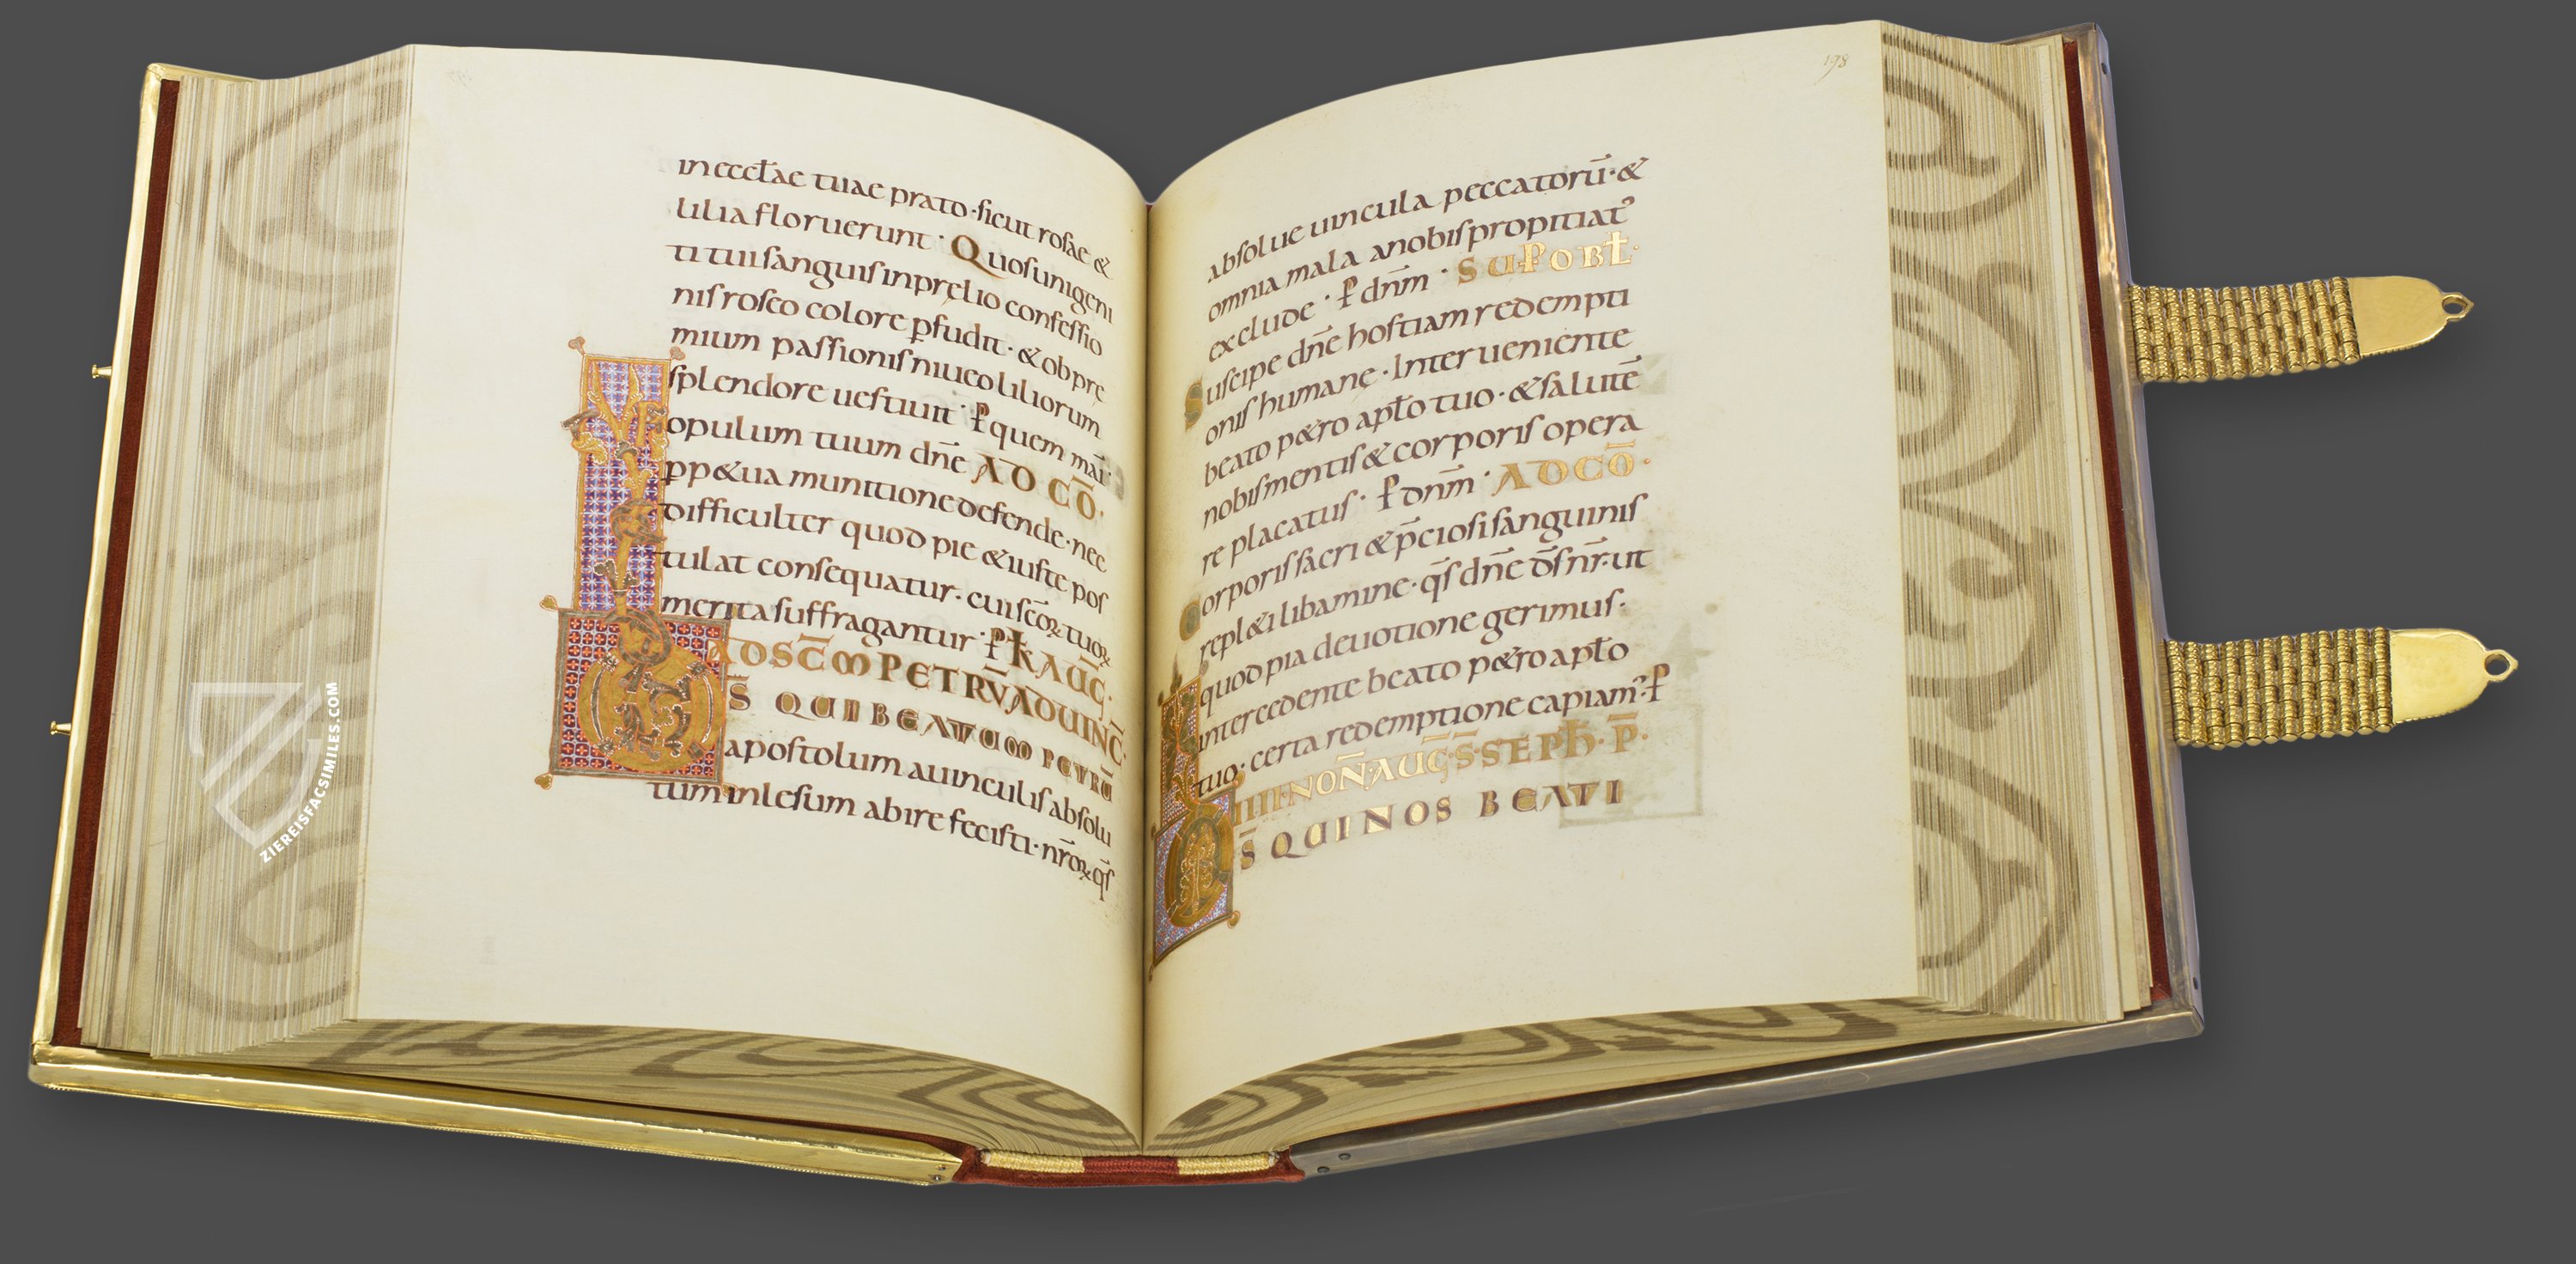 in eccłae tuae prato·sicut rosae &
lilia floruerunt· Quos unigeni
ti tui sanguis in pręlio confessio
nis roseo colore ꝑfudit·&ob pre
mium passionis niueo liliorum
splendore uestiuit· ꝑ quem mai·
opulum tuum dn̄e AD CŌ·
ꝓp&ua munitione defende·nec
difficulter quod pie &iuste pos
tulat consequatur·cui sc̄oꝝ tuoꝝ
merita suffragantur·ꝑ K̄ AUḠ·
AD SC̄M PETRŪ AD UINC̄·
S̄ QUI BEATUM PETRŪ
apostolum a uinculis absolu
tum inlesum abire fecisti·nr̄oꝝ qs̄
198
absolue uincula peccatorū·&
omnia mala a nobis propitiat᷒
exclude· ꝑ dn̄m· SUP OBŁ·
Suscipe dn̄e hostiam redempti
onis humane·Interueniente
beato p&ro apło tuo·&salutē
nobis mentis & corporis opera
re placatus· ꝑ dn̄m· AD CŌ·
Corporis sacri &p̄ciosi sanguinis
repl&i libamine·qs̄ dn̄e ds̄ nr̄·ut
quod pia deuotione gerimus·
intercedente beato p&ro apło
tuo·certa redemptione capiam᷒·ꝑ
IIII·NON̄·AUḠ·S̄·STEPH̄·P̄·
S̄ QUI NOS BEATI
ZIEREISFACSIMILES.COM